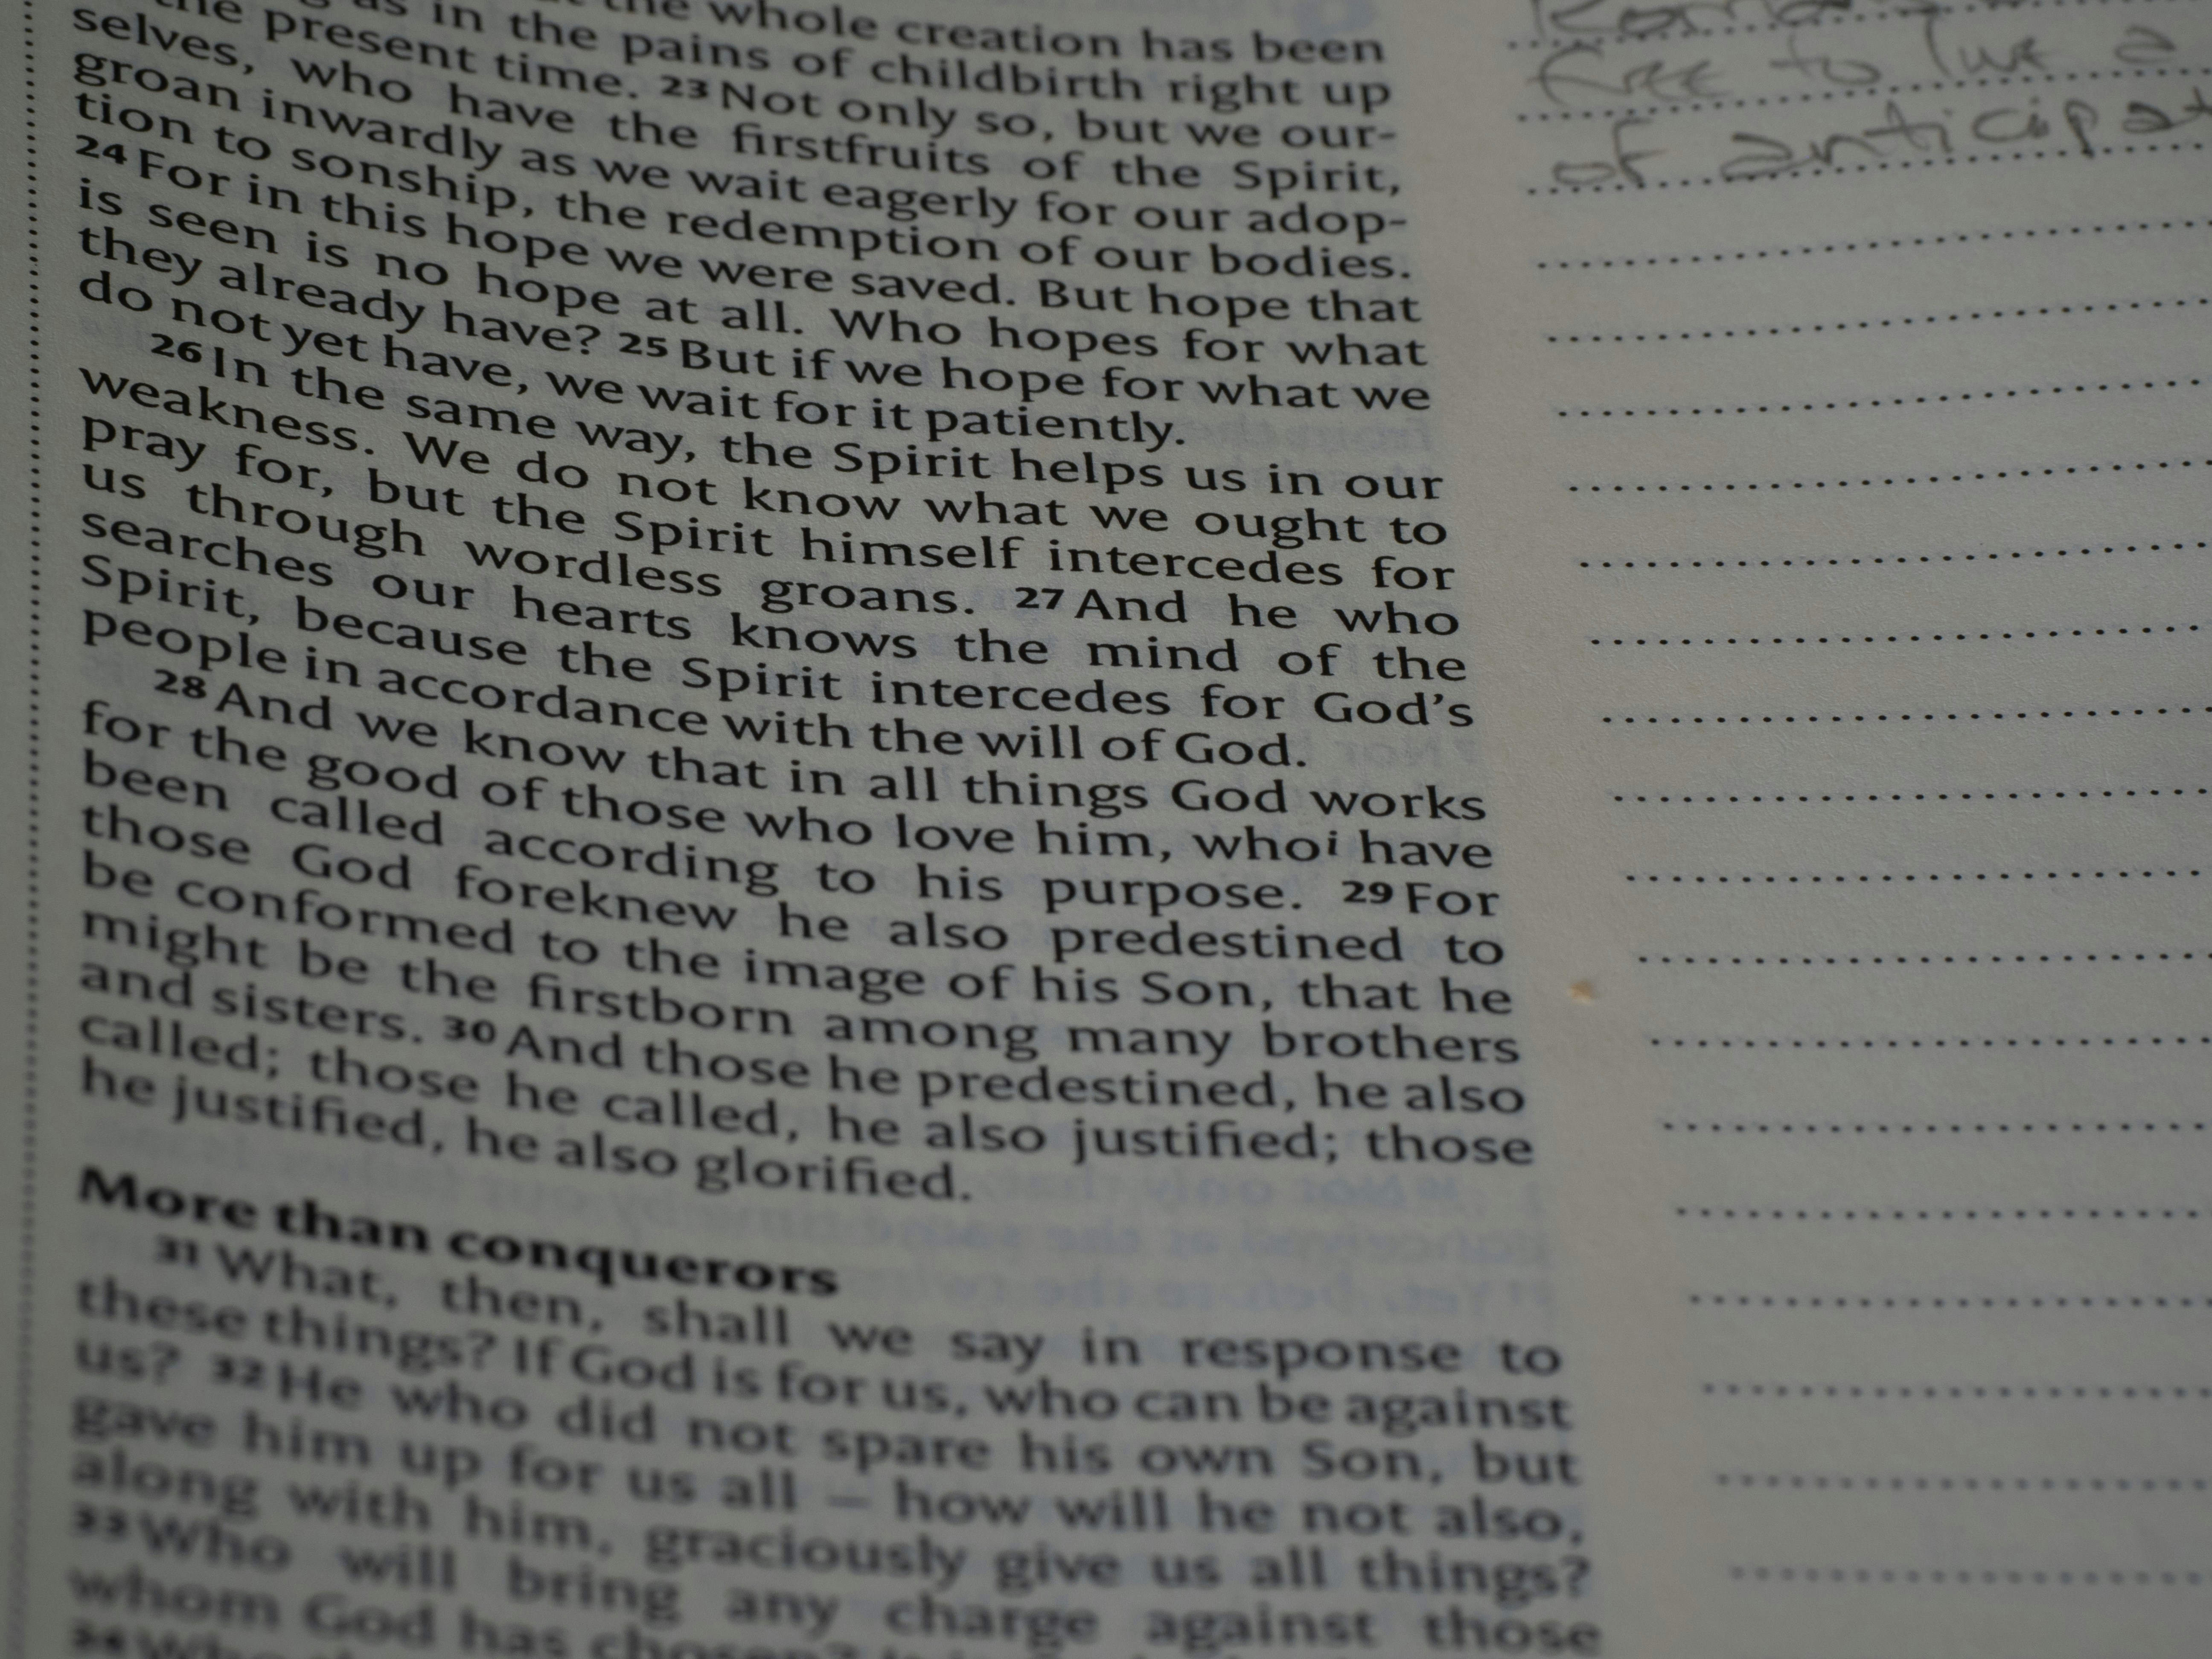 the whole creation has been
as in the pains of childbirth right up
the present time. 23 Not only so, but we our-
selves, who have the firstfruits of the Spirit,
groan inwardly as we wait eagerly for our adop-
tion to sonship, the redemption of our bodies.
24 For in this hope we were saved. But hope that
is seen is no hope at all. Who hopes for what
they already have? 25 But if we hope for what we
do not yet have, we wait for it patiently.
26 In the same way, the Spirit helps us in our
weakness. We do not know what we ought to
pray for, but the Spirit himself intercedes for
us through wordless groans. 27 And he who
searches our hearts knows the mind of the
Spirit, because the Spirit intercedes for God's
people in accordance with the will of God.
28 And we know that in all things God works
for the good of those who love him, who i have
been called according to his purpose. 29 For
those God foreknew he also predestined to
be conformed to the image of his Son, that he
might be the firstborn among many brothers
and sisters. 30 And those he predestined, he also
called; those he called, he also justified; those
he justified, he also glorified.
More than conquerors
31 What, then, shall we say in response to
these things? If God is for us, who can be against
us? 32 He who did not spare his own Son, but
gave him up for us all – how will he not also,
along with him, graciously give us all things?
33 Who will bring any charge against those
whom God has chosen?
34
free to live a
of anticipat